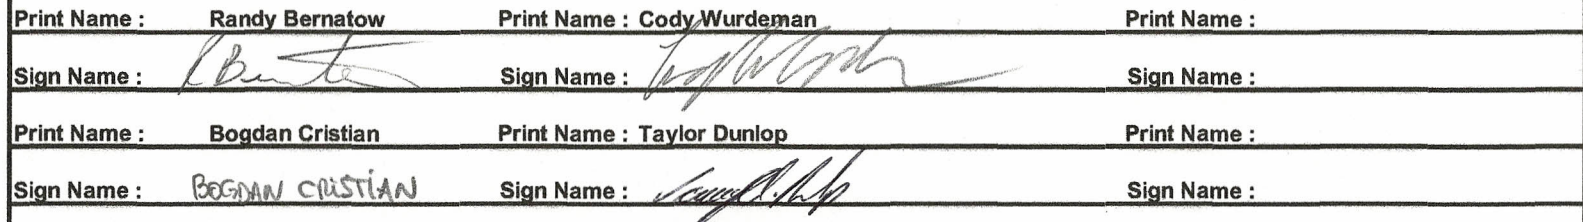 Print Name : Randy Bernatow Print Name : Cody Wurdeman Print Name :
Sign Name : R Bernatow Sign Name : Sign Name :
Print Name : Bogdan Cristian Print Name : Taylor Dunlop Print Name :
Sign Name : BOGDAN CRISTIAN Sign Name : Sign Name :